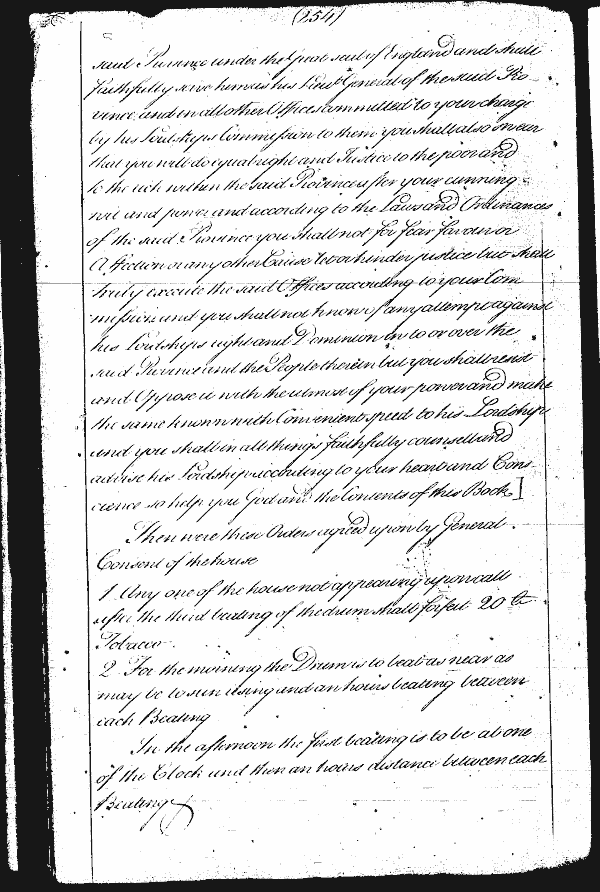 (254)
said Province under the Great seal of England and shall
faithfully serve him as his Lieut General of the said Pro
vince and in all other Offices committed to your charge
by his Lordships Commission to them you shall also swear
that you will do equal right and Justice to the poor and
to the rich within the said Province after your cunning
wit and power and according to the Laws and Ordinances
of the said Province you shall not for fear favour or
Affection or any other Cause let or hinder justice but shall
truly execute the said Offices according to your Com
mission and you shall not know of any attempt against
his Lordships right and Dominion in to or over the
said Province and the People therein but you shall resist
and Oppose it with the utmost of your power and make
the same known with Convenient speed to his Lordship
and you shall in all things faithfully counsell and
advise his Lordship according to your heart and Cons-
cience so help you God and the Contents of this Book]
Then were these Orders agreed upon by General
Consent of the house
1 Any one of the house not appearing upon call
after the third beating of the drum shall forfeit 20 lb
Tobacco.
2 For the morning the Drum is to beat as near as
may be to sun rising and an hours beating between
each Beating
In the afternoon the first beating is to be at one
of the Clock and then an hours distance between each
Beating